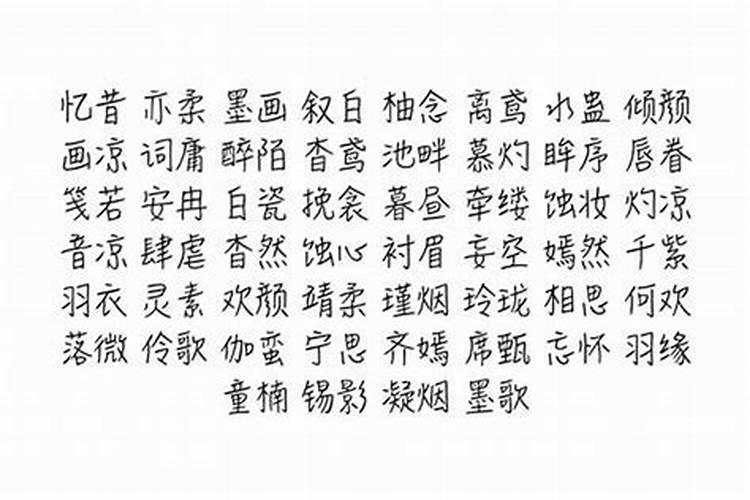 忆昔 亦柔 墨画 叙白 柚念 离鸢 水蛊 倾颜
画凉 词庸 醉陌 杳鸢 池畔 慕灼 眸序 唇眷
笺若 安冉 白瓷 挽衾 暮昼 牵缕 蚀妆 灼凉
音凉 肆虐 杳然 蚀心 衬眉 妄空 嫣然 千紫
羽衣 灵素 欢颜 靖柔 瑾烟 玲珑 相思 何欢
落微 伶歌 伽蛮 宁思 齐嫣 席甄 忘怀 羽缘
童楠 锡影 凝烟 墨歌